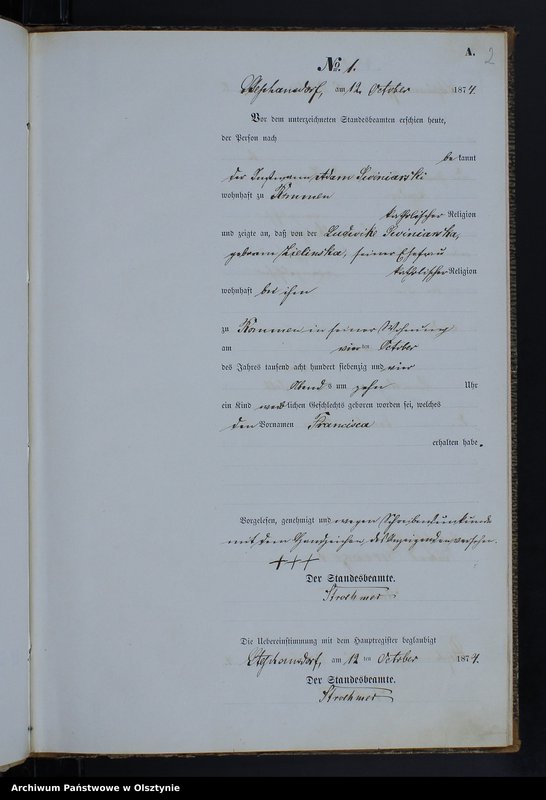 A.
2
No. 1.
Stephansdorf, am 12 October 1874.
Vor dem unterzeichneten Standesbeamten erschien heute,
der Person nach
be kannt
der Instmann Adam Siviniarski
wohnhaft zu Kommen
katholischer Religion
und zeigte an, daß von der Ludwike Siviniarska,
geborene Zielinska, seiner Ehefrau
katholischer Religion
wohnhaft bei ihm
zu Kommen in seiner Wohnung
am vier ten October
des Jahres tausend acht hundert siebenzig und vier
Abend s um zehn Uhr
ein Kind weib lichen Geschlechts geboren worden sei, welches
den Vornamen Francisca
erhalten habe.
Vorgelesen, genehmigt und wegen Schreibensunkunde
mit dem Handzeichen des Anzeigenden versehen.
+++
Der Standesbeamte.
Strochmer
Die Uebereinstimmung mit dem Hauptregister beglaubigt
Stephansdorf, am 12 ten October 1874.
Der Standesbeamte.
Strochmer
Archiwum Państwowe w Olsztynie